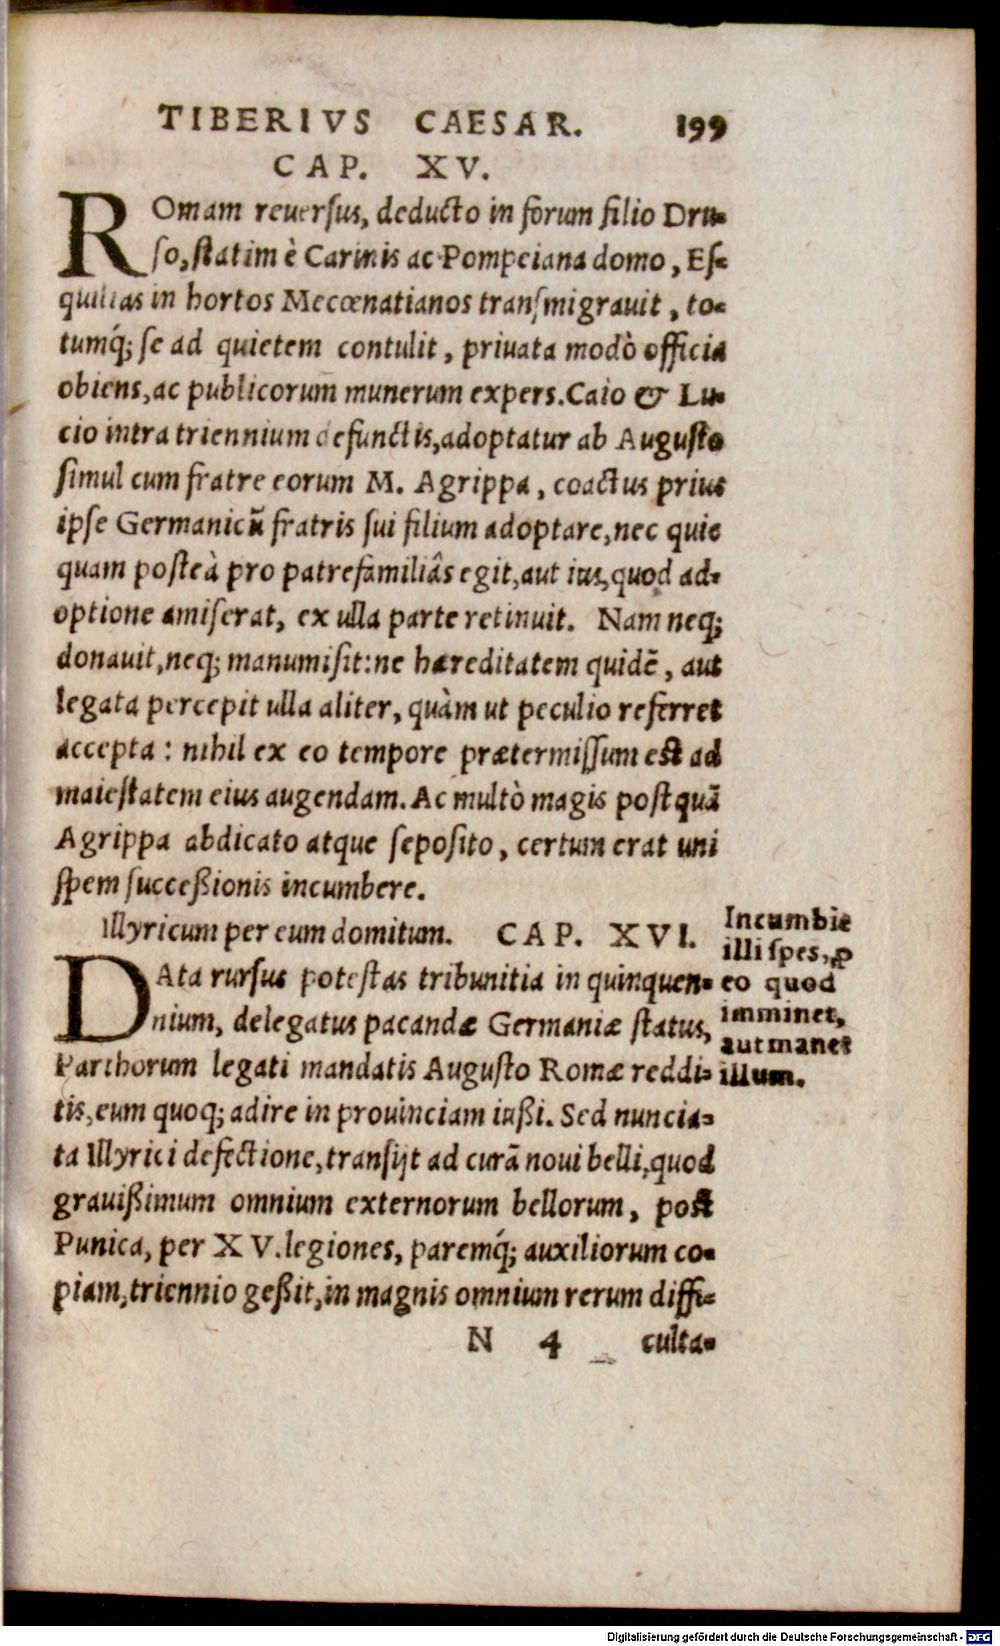 TIBERIVS CAESAR. 199
CAP. XV.
ROmam reuersus, deducto in forum filio Dru-
so, statim è Carinis ac Pompeiana domo, Es-
quilias in hortos Mecœnatianos transmigrauit, to-
tumq́; se ad quietem contulit, priuata modò officia
obiens, ac publicorum munerum expers. Caio & Lu-
cio intra triennium defunctis, adoptatur ab Augusto
simul cum fratre eorum M. Agrippa, coactus prius
ipse Germanicū fratris sui filium adoptare, nec quic
quam posteà pro patrefamiliâs egit, aut ius, quod ad-
optione amiserat, ex ulla parte retinuit. Nam neq;
donauit, neq; manumisit: ne hæreditatem quidē, aut
legata percepit ulla aliter, quàm ut peculio referret
accepta: nihil ex eo tempore prætermissum est ad
maiestatem eius augendam. Ac multò magis postquā
Agrippa abdicato atque seposito, certum erat uni
spem successionis incumbere.
Illyricum per eum domitum. CAP. XVI.
DAta rursus potestas tribunitia in quinquen-
nium, delegatus pacandæ Germaniæ status,
Parthorum legati mandatis Augusto Romæ reddi-
tis, eum quoq; adire in prouinciam iußi. Sed nuncia-
ta Illyrici defectione, transijt ad curā noui belli, quod
grauißimum omnium externorum bellorum, post
Punica, per XV. legiones, paremq́; auxiliorum co-
piam, triennio geßit, in magnis omnium rerum diffi-
N 4 culta-
Incumbit
illi spes, ꝓ
eo quod
imminet,
aut manet
illum.
Digitalisierung gefördert durch die Deutsche Forschungsgemeinschaft - DFG